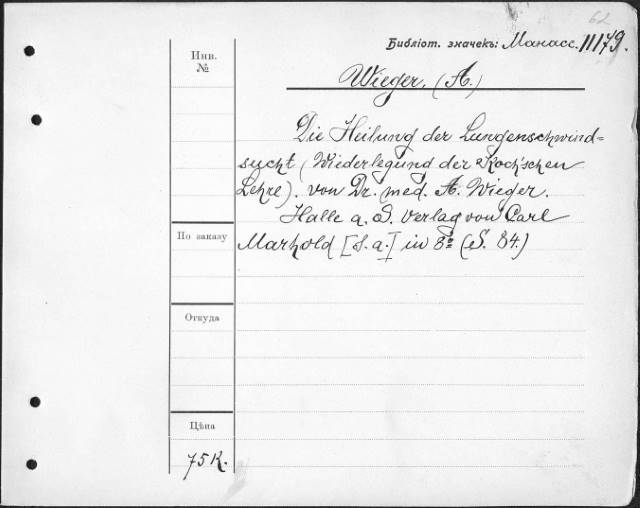 62
Библіот. значекъ: Манасс. 11179.
Инв.
№
Wieger, (A.)
Die Heilung der Lungenschwind=
sucht (Wiederlegung der Koch'schen
Lehre). von Dr. med. A. Wieger.
Halle a. d. Verlag von Carl
По заказу
Marhold [s. a.] in 8º (S. 84.)
Откуда
Цѣна
75 к.